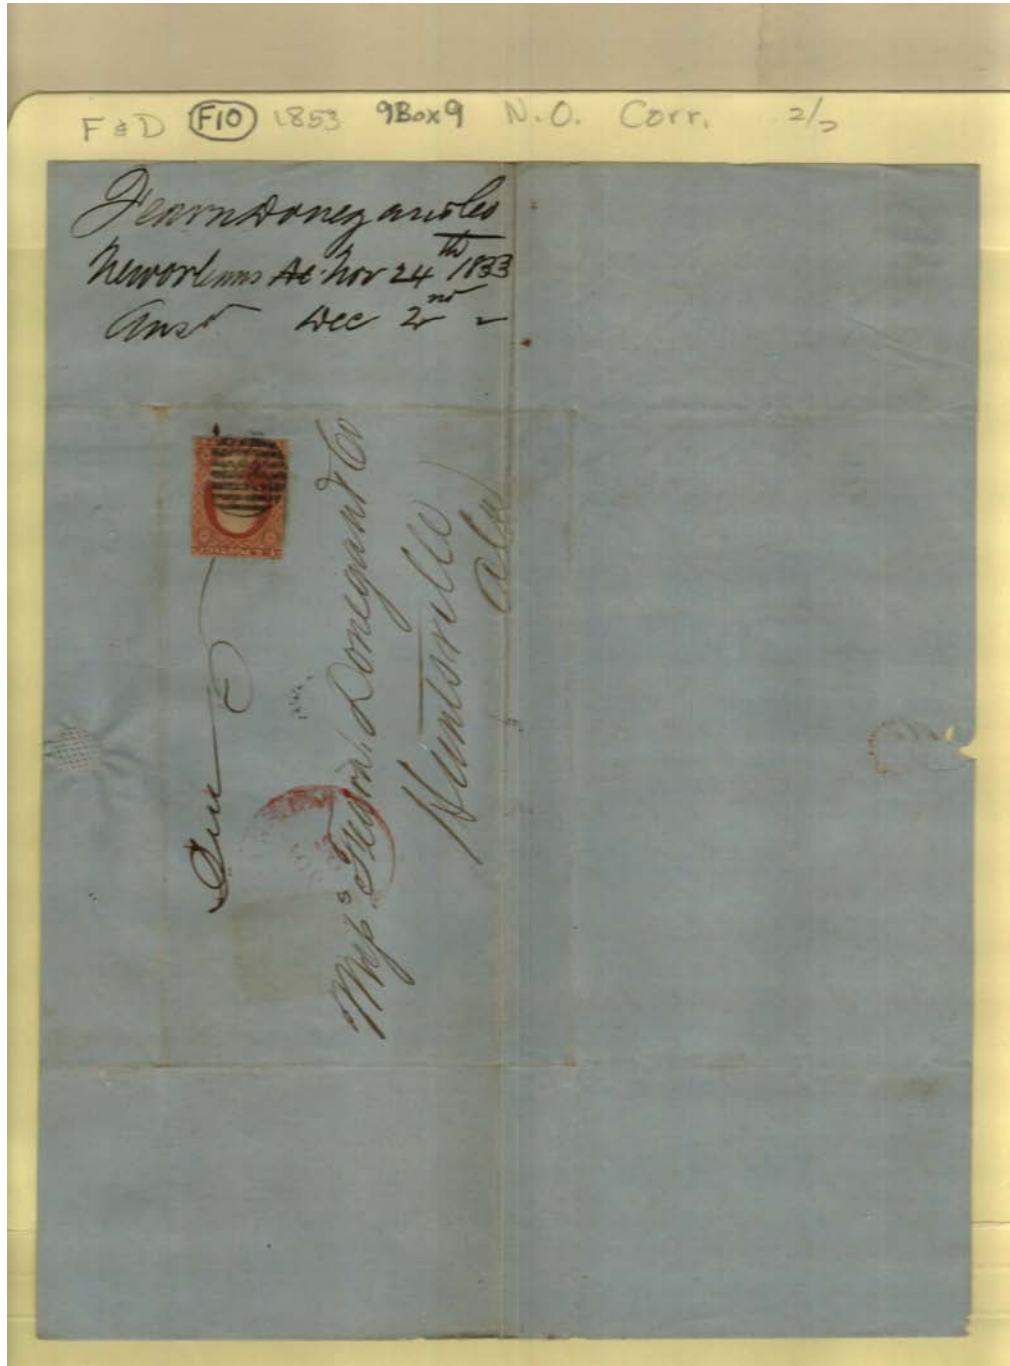 F & D F10 1853 9Box9 N.O. Corr. 2/2
Fearn Donegan & Co
New orleans Nov 24th 1853
Ansd Dec 2nd
Messrs Fearn Donegan & Co
Huntsville
Ala